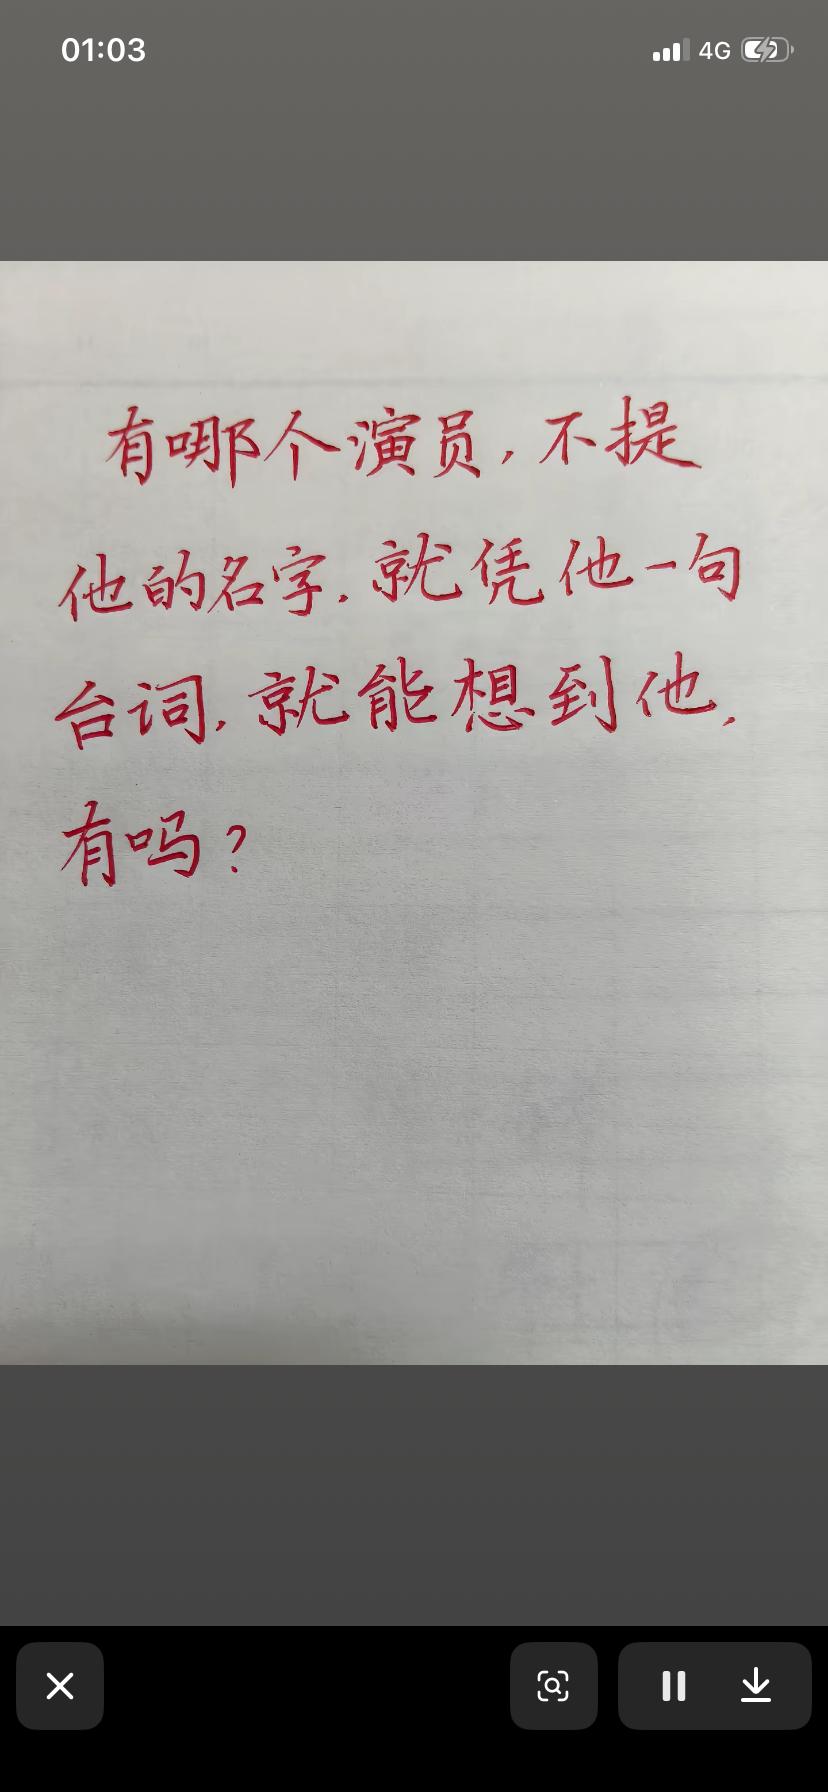 01:03
4G
有哪个演员,不提
他的名字.就凭他一句
台词.就能想到他.
有吗?